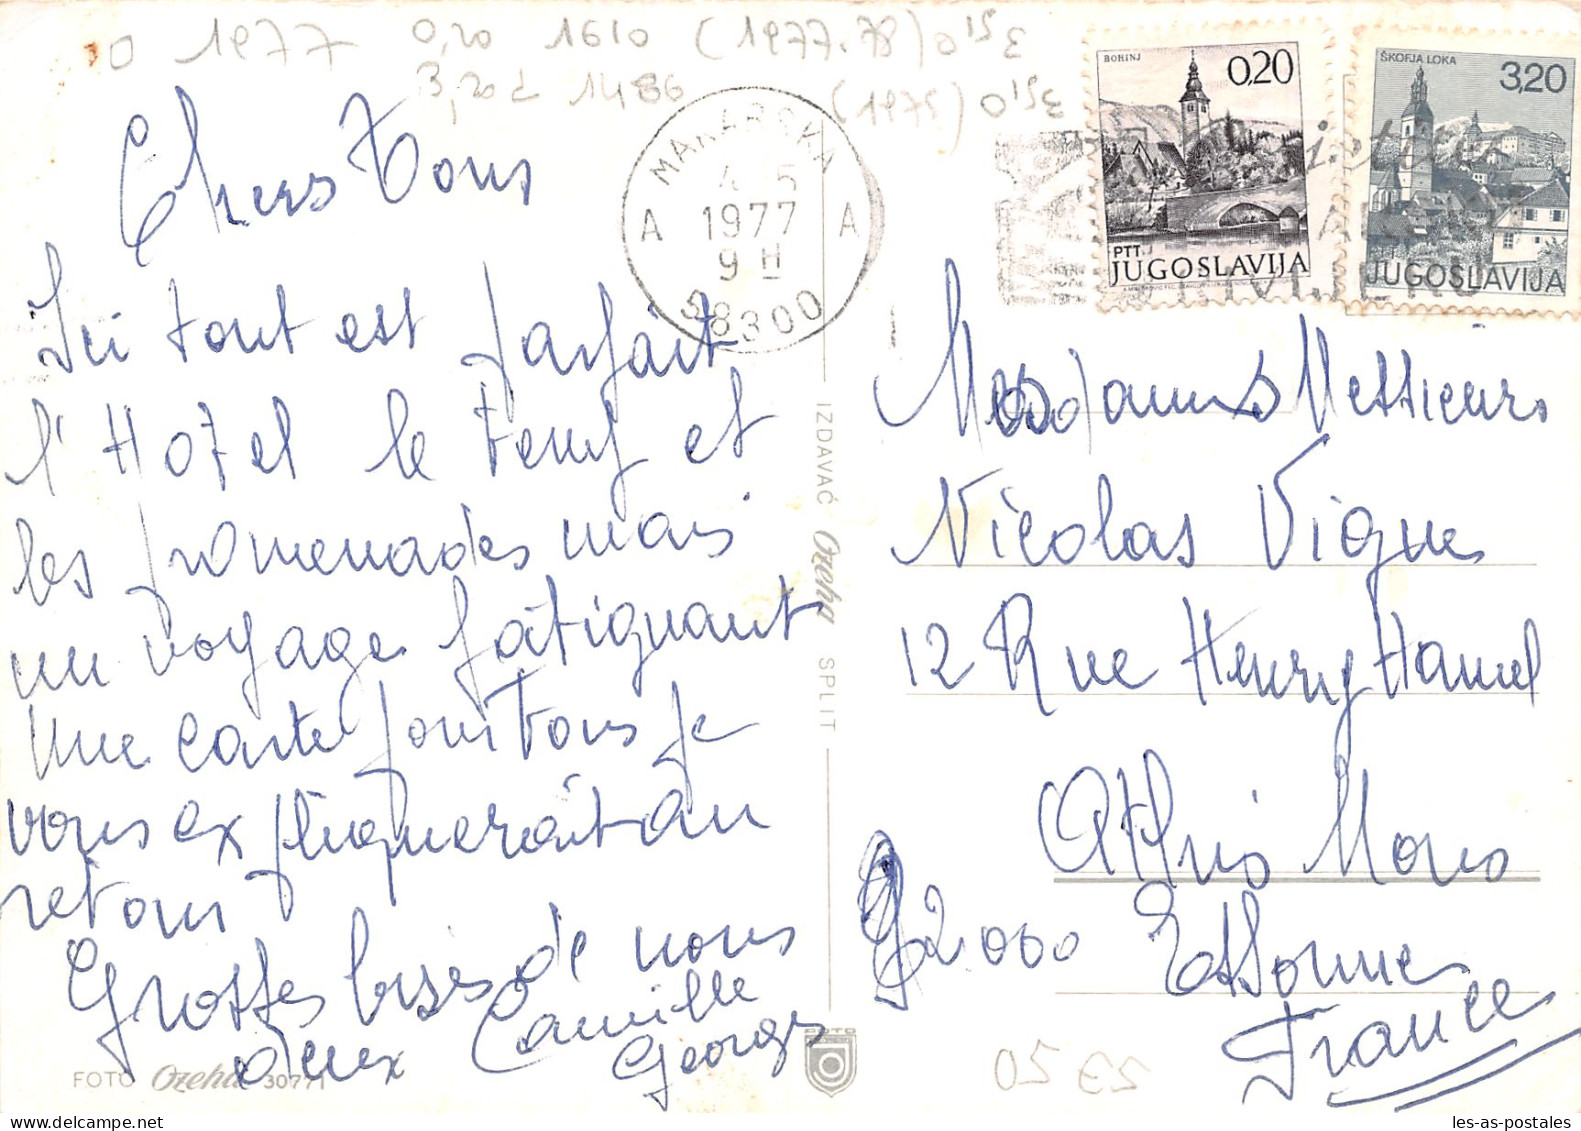 O 1977 0,20 1610 (1977.78) 0,15 E
3,20 d 1486 (1975) 0,15 E
Chers Tous
Ici tout est parfait
l'Hotel le temp et
les promenades mais
un voyage fatiguant
Une carte pour tous je
vous expliquerait au
retour
Grosses bises de nous
deux Camille
Georges
FOTO Ozeha 30771
MAKARSKA
4 5
A 1977 A
9 H
58300
IZDAVAČ Ozeha SPLIT
FOTO
BOHINJ
0,20
PTT
JUGOSLAVIJA
ŠKOFJA LOKA
3,20
JUGOSLAVIJA
Mesdames Messieurs
Nicolas Vigne
12 Rue Henry Hamel
Athis Mons
92000 Essonne
France
les-as-postales